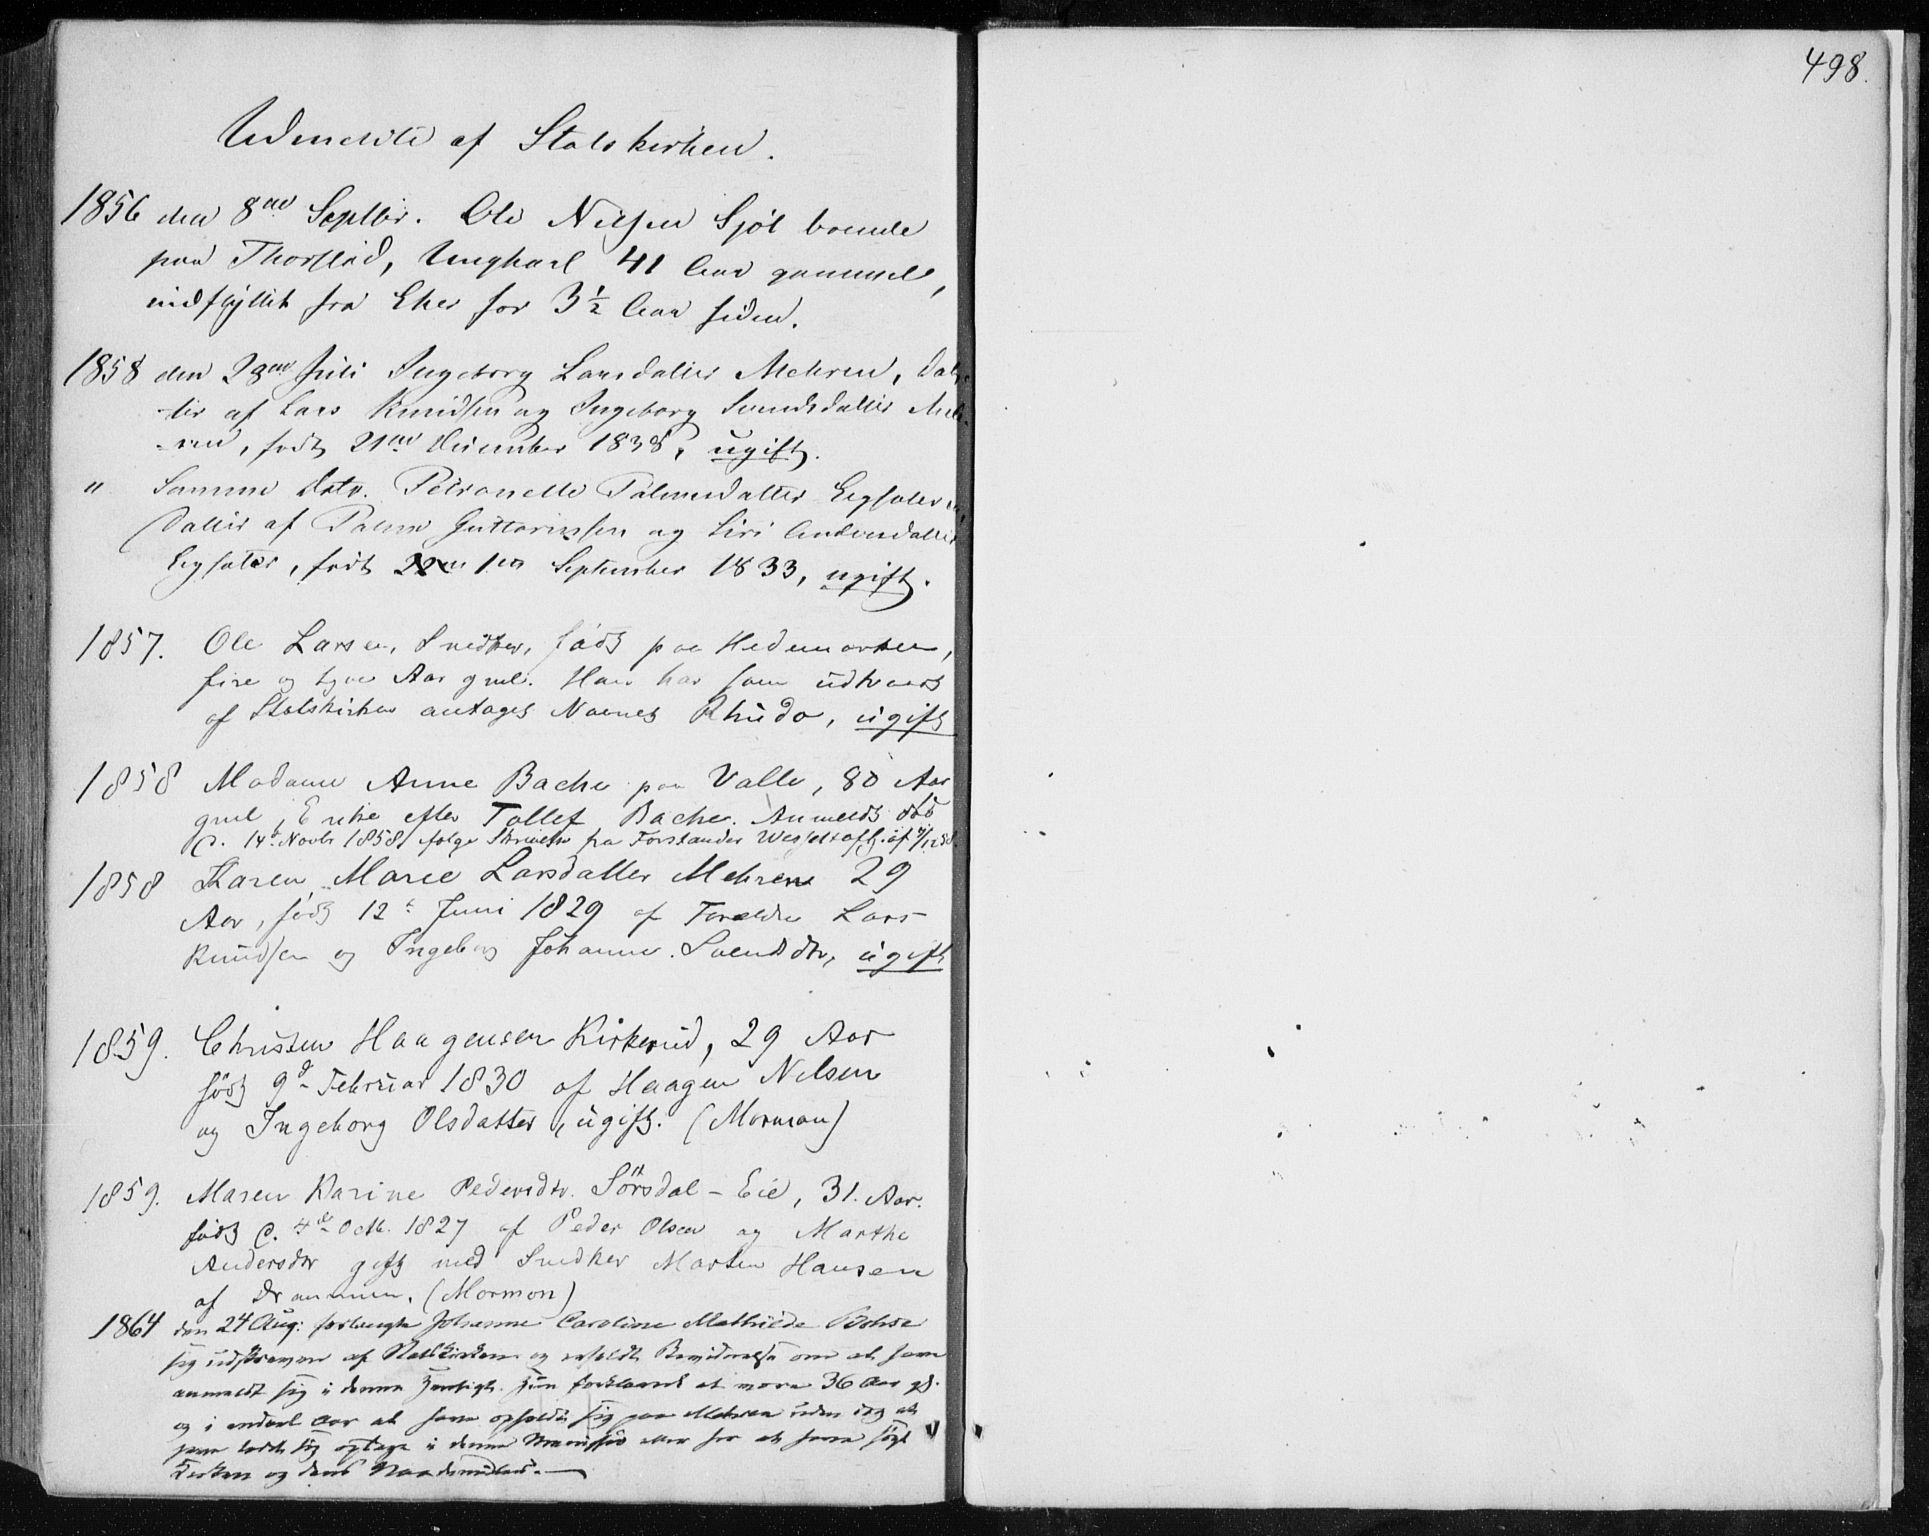 498.
Udmeldte af Statskirken.
1856 den 8de Septbr. Ole Nilsen Sjøl boende
paa Thorstad, Ungkarl 41 Aar gammel,
indflyttet fra Eker for 3½ Aar siden.
1858 den 28de Juli Ingeborg Larsdatter Mehren, Dat-
ter af Lars Knudsen og Ingeborg Svendsdatter Meh-
ren, født 21de December 1838, ugift.
" Samme Dato. Petronelle Palmesdatter Egsæter
Datter af Palme Guttormsen og Siri Andersdatter
Egsæter, født 1ste September 1833, ugift.
1857. Ole Larsen, Snedker, født paa Hedemarken,
fire og tyve Aar gml. Han har som udtraadt
af Statskirken antaget Navnet Rhude, ugift
1858 Madame Anne Bache paa Valle, 80 Aar
gml, Enke efter Tollef Bache. Anmeldt død
d. 14de Novbr 1858 ifølge Skrivelse fra Forstander
1858 Karen Marie Larsdatter Mehren 29
Aar, født 12te Juni 1829 af Forældre Lars
Knudsen og Ingeborg Johanne Svendsdtr, ugift
1859. Christen Haagensen Kirkerud, 29 Aar
født 9de Februar 1830 af Haagen Nelsen
og Ingeborg Olsdatter, ugift. (Mormon)
1859. Maren Karine Pedersdtr. Sörsdal-Eie, 31. Aar.
født d. 4de Octb. 1827 af Peder Olsen og Marthe
Andersdtr gift med Snedker Morten Hansen
af Drammen. (Mormon)
1864 den 24 Aug: forlangte Johanne Caroline Mathilde
sig udskreven af Statskirken og erholdt Bevidnelse om at have
anmeldt sig i denne Hensigt. Hun forklarede at være 36 Aar gl.
og i Aar at have opholdt sig paa Mehren uden dog at
have ladt sig optage i denne eller for at have søgt
Kirken og dens Naademidler.